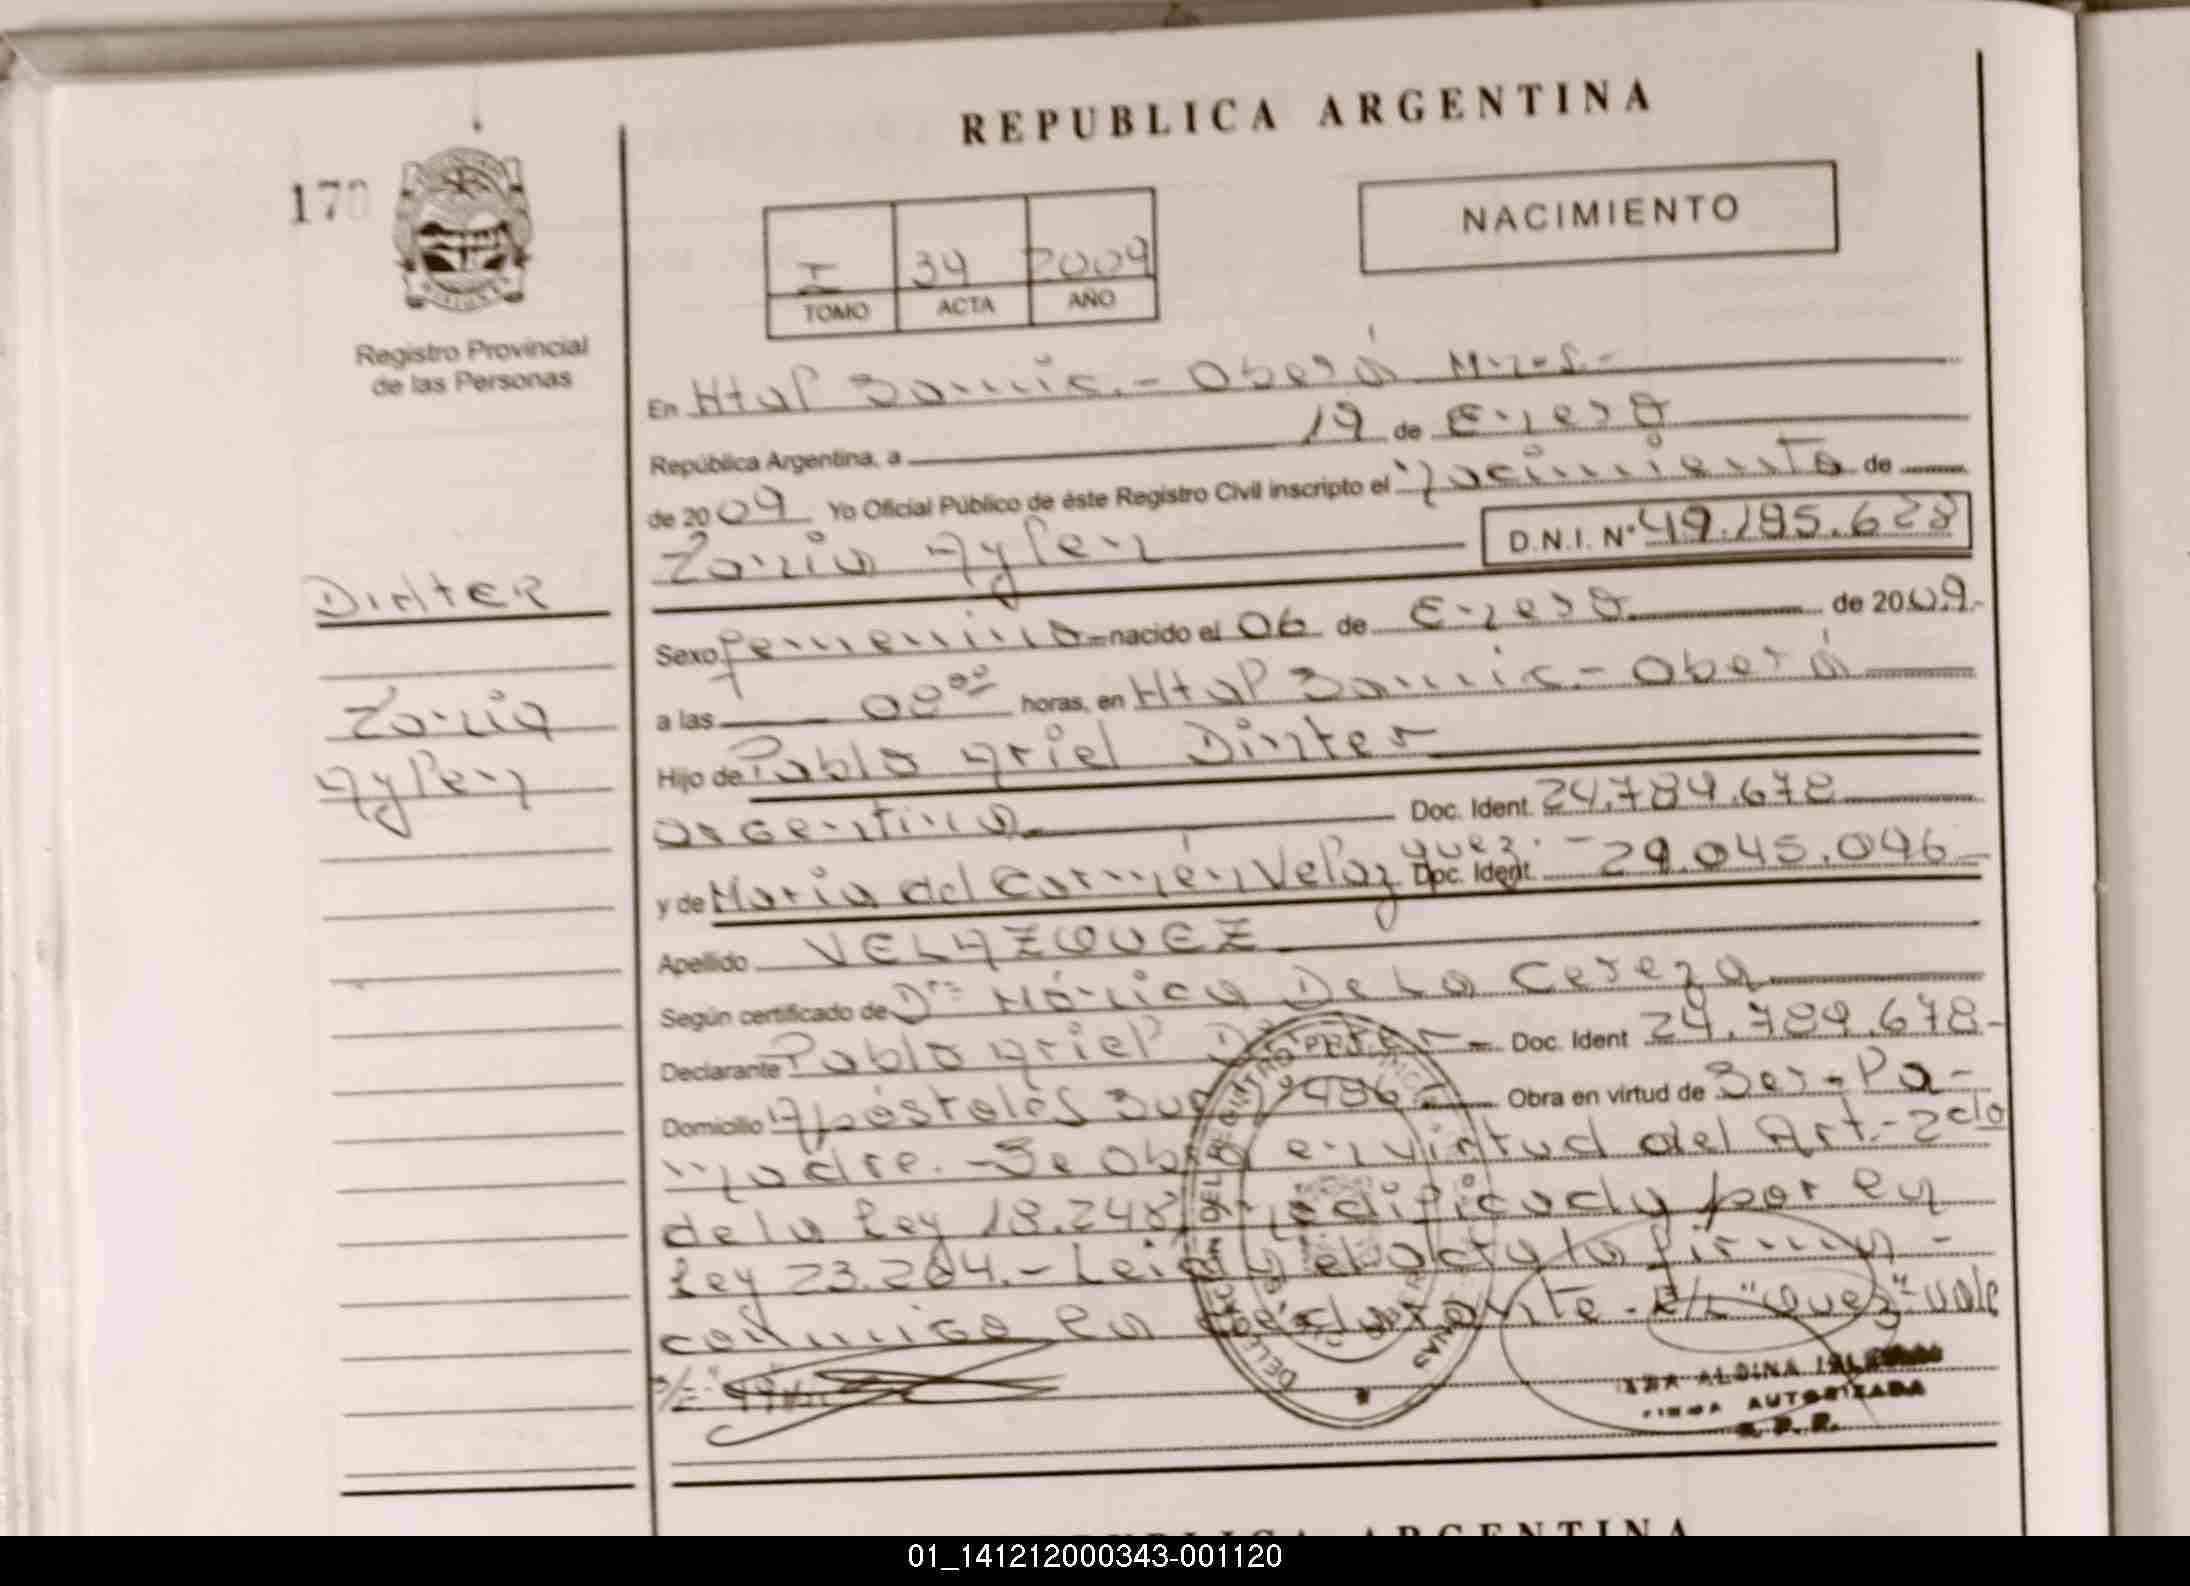 REPUBLICA ARGENTINA
170
NACIMIENTO
I 34 2009
TOMO ACTA AÑO
Registro Provincial
de las Personas
En Htal Samic.- Oberá Mnes.-
República Argentina, a 19 de Enero
de 2009 Yo Oficial Público de éste Registro Civil inscripto el Nacimiento de
Zonia Aylen D.N.I. Nº 49.195.628
DINTER
Sexo femenino nacido el 06 de Enero de 2009.-
Zonia
a las 08 00 horas, en Htal Samic.- Oberá
Aylen
Hijo de Pablo Ariel Dinter
argentino.- Doc. Ident. 24.784.678
y de Maria del Carmén Velazquez.- Doc. Ident. 29.045.046
Apellido VELAZQUEZ
Según certificado de Dra Mónica De La Cereza
Declarante Pablo Ariel Dinter- Doc. Ident 24.784.678-
Domicilio Apóstoles 486 Obra en virtud de Ser-Pa-
dre.- Se obra en virtud del Art.- 2do
de la Ley 18.248 modificada por la
Ley 23.264.- Leida el acta la firman-
conmigo la declarante.- E/L "quez"- vale
S/E-
AUTORIZADA
R. P. P.
REPUBLICA ARGENTINA
01_141212000343-001120